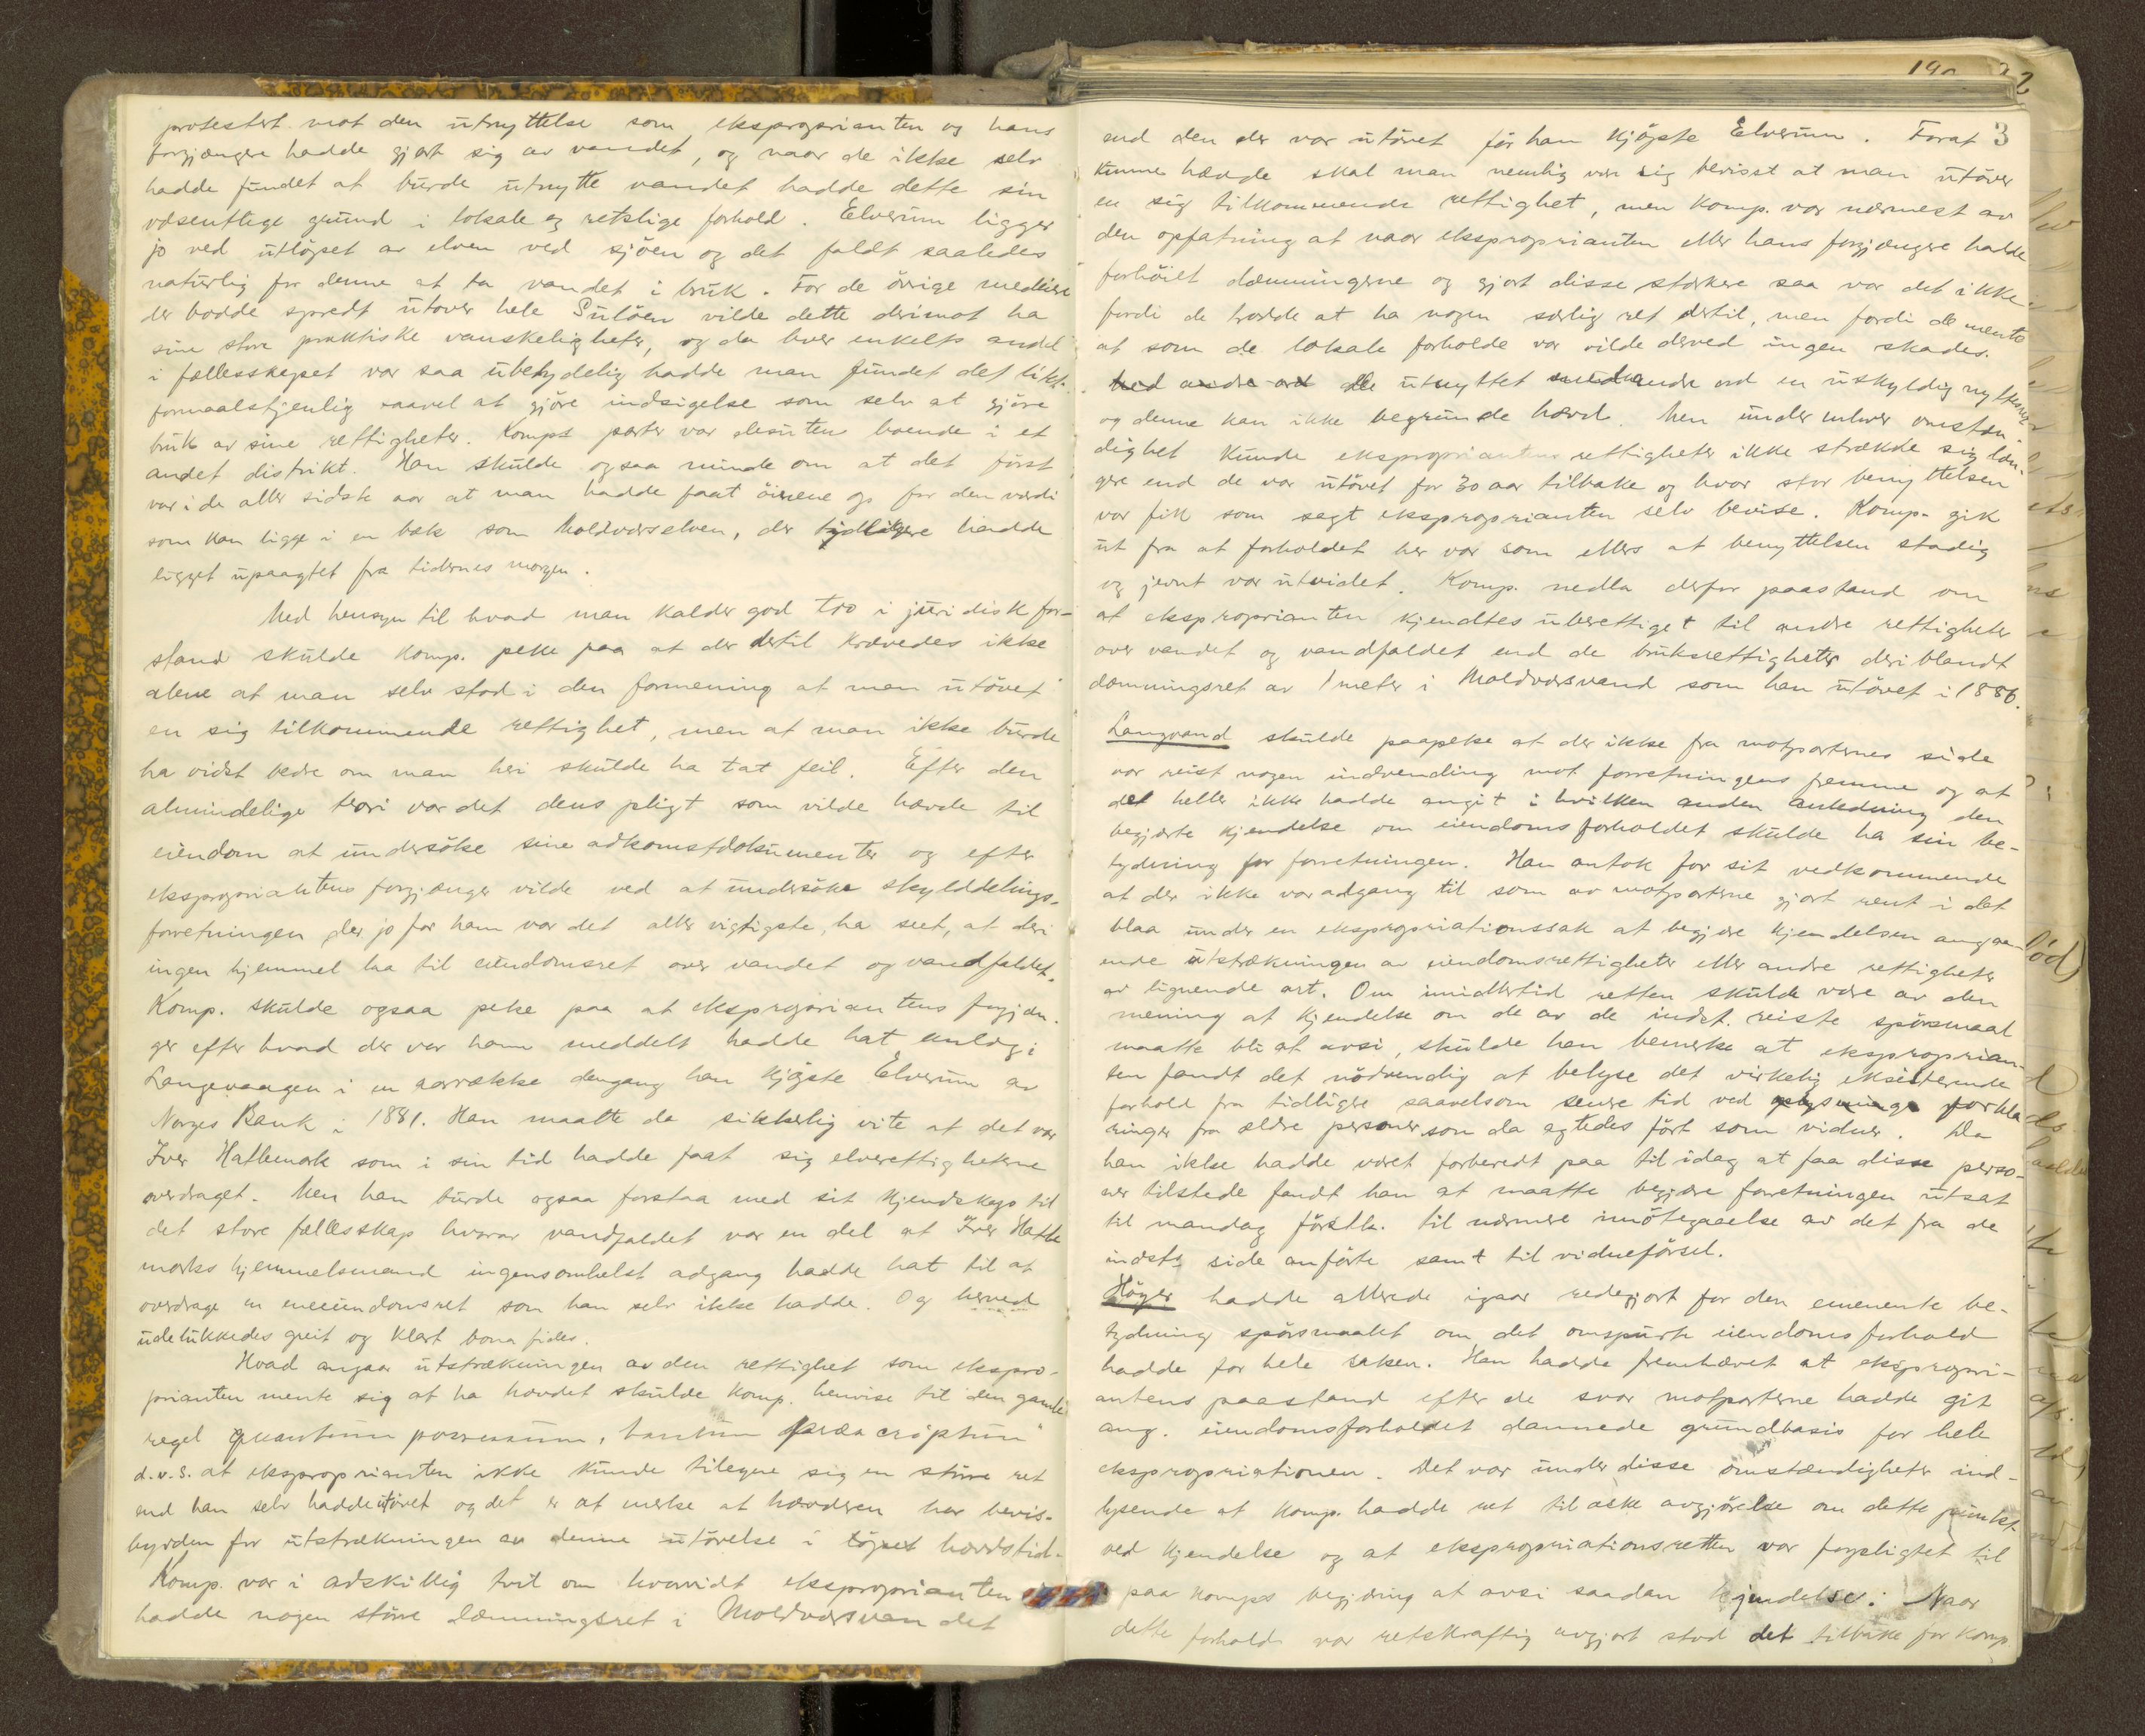 protestert mot den utnyttelse som eksproprianten og hans
forgjængere hadde gjort sig av vandet, og naar de ikke selv
hadde fundet at burde utnytte vandet hadde dette sin
væsentlige grund i lokale og retslige forhold. Elverum ligger
jo ved utløpet av elven ved sjøen og det faldt saaledes
naturlig for denne at ta vandet i bruk. For de øvrige medeiere
der bodde spredt utover hele Suløen vilde dette derimot ha
sine store praktiske vanskeligheter, og da hver enkelts andel
i fællesskapet var saa ubetydelig hadde man fundet det likt
formaalstjenlig saavel at gjøre indsigelse som selv at gjøre
bruk av sine rettigheter. Komps parter var desuten boende i et
andet distrikt. Han skulde ogsaa minde om at det først
var i de aller sidste aar at man hadde faat øinene op for den værdi
som kan ligge i en bæk som Moldværselven, der tydligere hadde
ligget upaagtet fra tidernes morgen.
Med hensyn til hvad man kalder god tro i juridisk for-
stand skulde komp. peke paa at der dertil krævedes ikke
alene at man selv stod i den formening at man utøvet
en sig tilkommende rettighet, men at man ikke burde
ha vidst bedre om man heri skulde ha tat feil. Efter den
almindelige teori var det dens pligt som vilde hævde til
eiendom at undersøke sine adkomstdokumenter og efter
eksproprianten​s forgjænger vilde ved at undersøke skylddelings-
forretningen der jo for ham var det aller vigtigste, ha seet, at deri
ingen hjemmel laa til eiendomsret over vandet og vandfaldet.
Komp. skulde ogsaa peke paa at eksproprianten​s forgjæn-
ger efter hvad der var ham meddelt hadde hat anlæg i
Langevaagen i en aarrække dengang han kjøpte Elverum av
Norges Bank i 1881. Han maatte da sikkerlig vite at det var
Iver Hatlemark som i sin tid hadde faat sig elverettigheterne
overdraget. Men han burde ogsaa forstaa med sit kjendskap til
det store fællesskap hvorav vandfaldet var en del at Iver Hatle
marks hjemmelsmand ingensomhelst adgang hadde hat til at
overdrage en eneeiendomsret som han selv ikke hadde. Og herved
udelukkedes greit og klart bona fides.
Hvad angaar utstrækningen av den rettighet som ekspro-
prianten mente sig at ha hævdet skulde komp. henvise til den gamle
regel quantum possessum, tantum præscriptum"
d.v.s. at eksproprianten ikke kunde tilegne sig en større ret
end han selv hadde utøvet og det er at merke at hævderen har bevis-
byrden for utstrækningen av denne utøvelse i løpet hævdstid.
Komp. var i adskillig tvil om hvorvidt eksproprianten
hadde nogen større dæmningsret i Moldværsvandet
3
end den der var utøvet før han kjøpte Elverum. Forat
kunne hævde skal man nemlig være sig bevisst at man utøver
en sig tilkommende rettighet, men komp. var nærmest av
den opfatning at naar eksproprianten eller hans forgjængere hadde
forhøiet dæmningerne og gjort disse sterkere saa var det ikke
fordi de trodde at ha nogen særlig ret dertil, men fordi de mente
at som de lokale forholde var vilde derved ingen skades.
Med andre ord de utnyttet med andre ord en uskyldig nyttesret
og denne kan ikke begrunde hævd. Men under enhver omstæn-
dighet kunde eksproprianten​s rettigheter ikke strække sig læn-
gere end de var utøvet for 30 aar tilbake og hvor stor benyttelsen
var fik som sagt eksproprianten selv bevise. Komp. gik
ut fra at forholdet her var som ellers at benyttelsen stadig
og jevnt var utvidet. Komp. nedla derfor paastand om
at eksproprianten kjendtes uberettiget til andre rettigheter
over vandet og vandfaldet end de bruksrettigheter deriblandt
dæmningsret av 1 meter i Moldværsvand som han utøvet i 1886.
Langvand skulde paapeke at der ikke fra motparternes side
var reist nogen indvending mot forretningens fremme og at
det heller ikke hadde angit i hvilken anden anledning den
begjærte kjendelse om eiendomsforholdet skulde ha sin be-
tydning for forretningen. Han antok for sit vedkommende
at der ikke var adgang til som av motparterne gjort rent i det
blaa under en ekspropriationssak at begjære kjendelsen angaa-
ende utstrækningen av eiendomsrettigheter eller andre rettigheter
av lignende art. Om imidlertid retten skulde være av den
mening at kjendelse om de av de indst. reiste spørsmaal
maatte bli at avsi, skulde han bemerke at eksproprian-
ten fandt det nødvendig at belyse det virkelig eksisterende
forhold fra tidligere saavelsom senere tid ved forkla
ringer fra ældre personer som da agtedes ført som vidner. Da
han ikke hadde været forberedt paa til idag at faa disse perso-
ner tilstede fandt han at maatte begjære forretningen utsat
til mandag førstk. til nærmere imøtegaaelse av det fra de
indsts side anførte samt til vidneførsel.
Høyer hadde allerede igaar redegjort for den eminente be-
tydning spørsmaalet om det omspurte eiendomsforhold
hadde for hele saken. Han hadde fremhævet at ekspropri-
antens paastand efter de svar motparterne hadde git
ang. eiendomsforholdet dannede grundbasis for hele
ekspropriationen. Det var under disse omstændigheter ind-
lysende at komp. hadde ret til æske avgjørelse om dette punkt
ved kjendelse og at ekspropriationsretten var forpligtet til
paa komps begjæring at avsi saadan kjendelse. Naar
dette forhold var retskraftig avgjort stod det tilbake for komp.